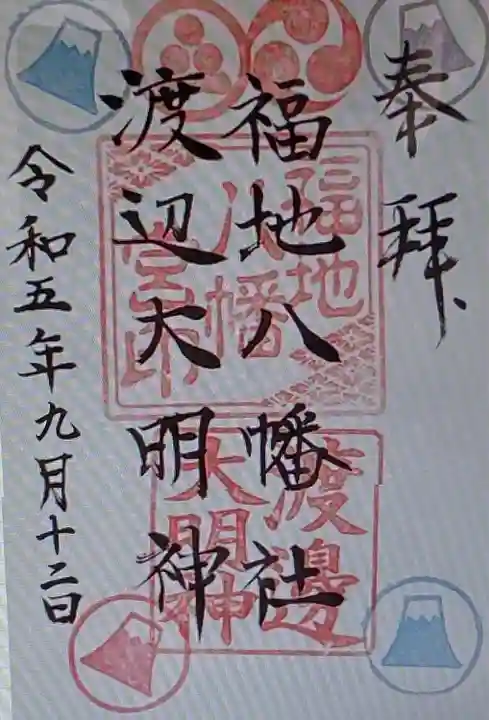 奉拝
福地八幡社
渡辺大明神
令和五年九月十二日
福地
八幡
宮印
渡邊
大明神